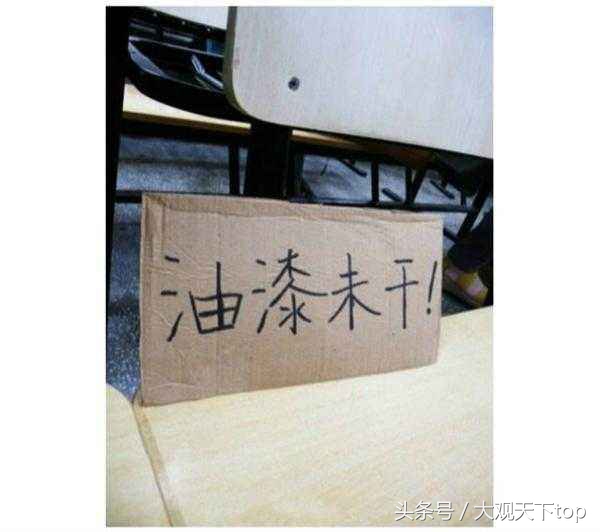 油漆未干!
头条号 / 大观天下top